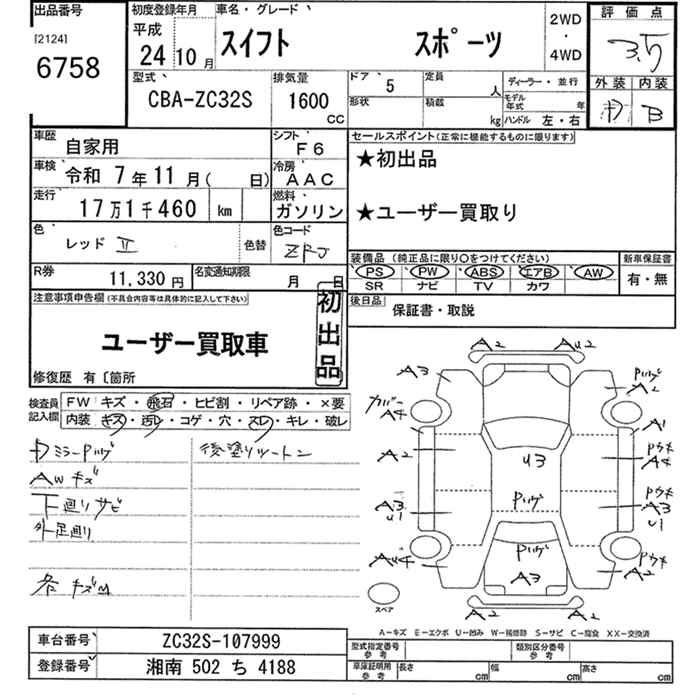 出品番号
[2124]
6758
初度登録年月
平成
24 10月
車名・グレード
スイフト スポーツ
2WD
・
4WD
評価点
3.5
外装 内装
B
型式
CBA-ZC32S
排気量
1600
CC
ドア 5
形状
定員 人
積載 kg
ディーラー・並行
モデル年式 年
ハンドル 左・右
車歴 自家用
シフト F6
車検 令和 7年11月( 日)
冷房 AAC
走行 17万1千460 km
燃料 ガソリン
色 レッドⅡ
色替
色コード ZRJ
R券 11,330円
名変通知期限 月 日
セールスポイント(正常に機能するものに限ります)
★初出品
★ユーザー買取り
装備品(純正品に限り○をつけてください)
PS PW ABS エアB AW
SR ナビ TV カワ
新車保証書
有・無
後日品
保証書・取説
注意事項申告欄(不具合内容等は具体的に記入して下さい)
初出品
ユーザー買取車
修復歴 有〔箇所
検査員記入欄
FW キズ・飛石・ヒビ割・リペア跡・×要
内装 キズ・汚レ・コゲ・穴・スレ・キレ・破レ
ミラーPハゲ
後塗りツートン
AWキズ
下廻りサビ
外足廻り
各キズM
A2 AU2
A3
Pハゲ
A2
カバー
A4
A1
A2
Pウキ
A4
U3
Pハゲ
A3
U1
Pウキ
A3
U1
AU4
Pハゲ
A3
Pウキ
A2
A2 A2
スペア
A−キズ E−エクボ U−凹み W−補修跡 S−サビ C−腐食 XX−交換済
車台番号 ZC32S-107999
登録番号 湘南 502 ち 4188
型式指定番号
参考
類別区分番号
参考
車庫証明用
参考
長さ cm 幅 cm 高さ cm